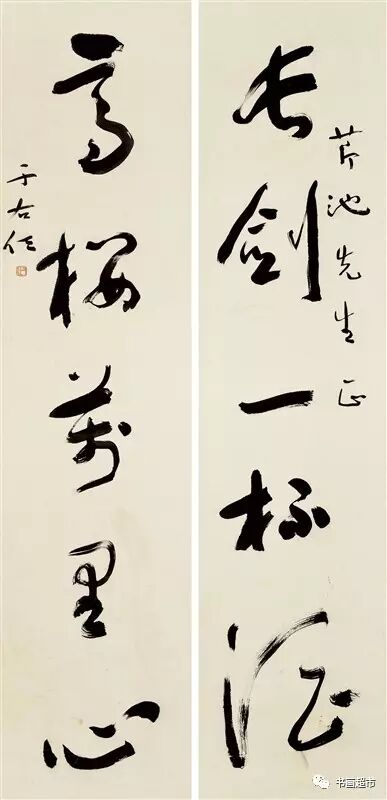 芹池先生正
长剑一杯酒
高楼万里心
于右任
书画超市